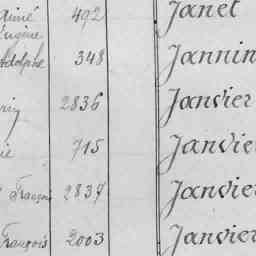 Aimé 492 Janet
Eugène
Adolphe 348 Jannin
2836 Janvier
715 Janvie
François 2837 Janvier
François 2003 Janvier